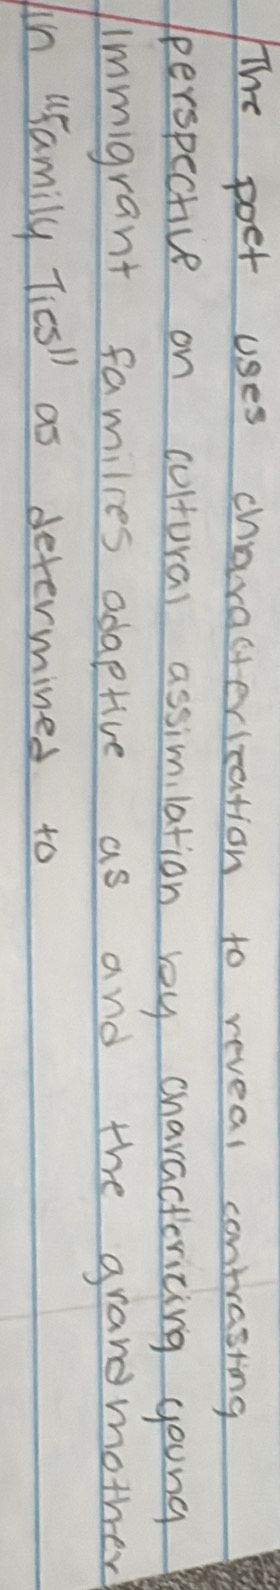 The poet uses characterization to reveal contrasting
perspective on cultural assimilation by characterizing young
immigrant familres adaptive as and the grandmother
in "Family Ties" as determined to